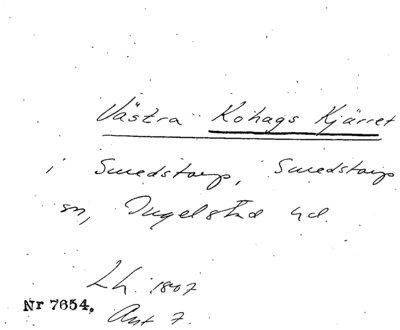 Västra Kohags Kjärret
i Smedstorp, Smedstorps
sn, Ingelstad hd.
Lh. 1807
Nr 7654.
Akt 7.